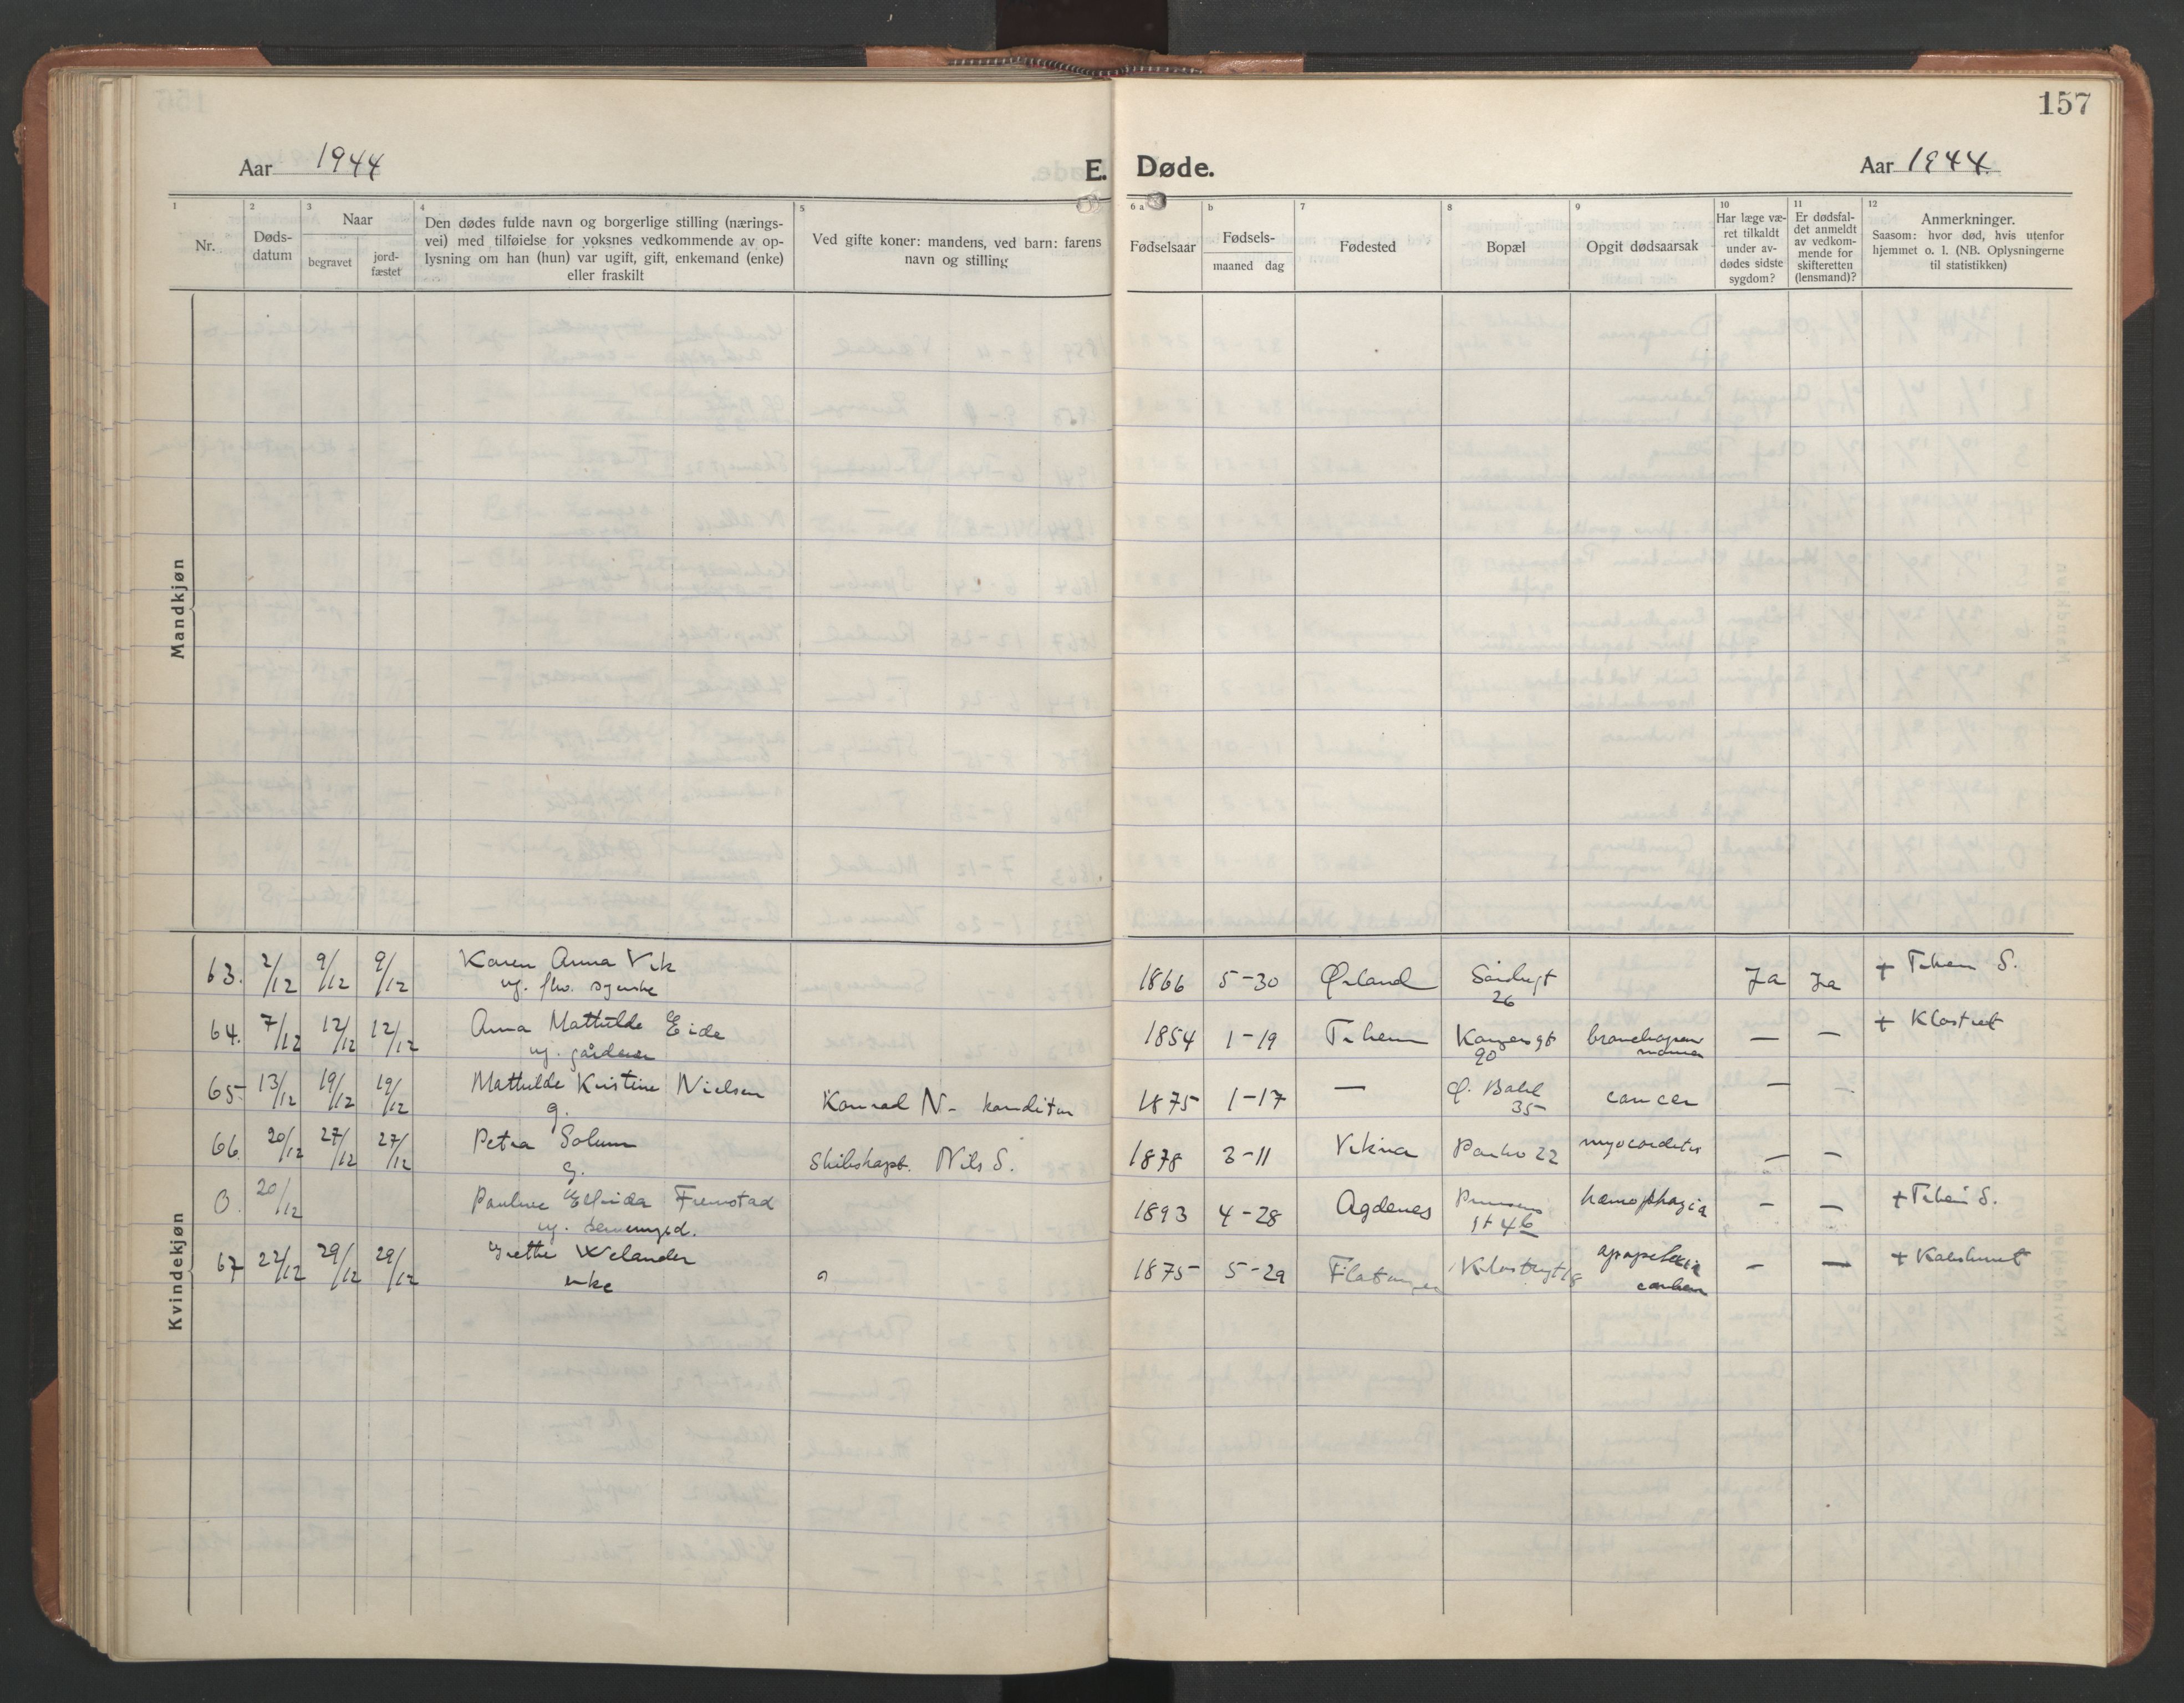 157
Aar 1944
E. Døde.
Aar 1944.
1 2 3 4 5 6 a b 7 8 9 10 11 12
Nr.
Døds-
datum
Naar
begravet
jord-
fæstet
Den dødes fulde navn og borgerlige stilling (nærings-
vei) med tilføielse for voksnes vedkommende av op-
lysning om han (hun) var ugift, gift, enkemand (enke)
eller fraskilt
Ved gifte koner: mandens, ved barn: farens
navn og stilling
Fødselsaar
Fødsels-
maaned dag
Fødested
Bopæl
Opgit dødsaarsak
Har læge væ-
ret tilkaldt
under av-
dødes sidste
sygdom?
Er dødsfal-
det anmeldt
av vedkom-
mende for
skifteretten
(lensmand)?
Anmerkninger.
Saasom: hvor død, hvis utenfor
hjemmet o. l. (NB. Oplysningerne
til statistikken)
Mandkjøn
Kvindekjøn
63. 2/12 9/12 9/12 Karen Anna Vik 1866 5-30 Ørland Ja Ja + Trheim S.
ug. fhv. syerske 26
64. 7/12 12/12 12/12 Anna Mathilde Eide 1854 1-19 Trheim Kongensgt —  — + Klostret
ug. gårdeier 90
65 13/12 19/12 19/12 Mathilde Kristine Nielsen Konrad N- konditor 1875 1-17 — Ø. Bakl cancer — —
g. 35
66 20/12 27/12 27/12 Petra Solum Skibskapt. Nils S. 1878 3-11 Vikna 22 myocarditis — —
g.
0. 20/12 Pauline Elfrida Fremstad 1893 4-28 Agdenes Prinsens — — + Trheim S.
ug. gt 46
67 22/12 29/12 29/12 Grethe Welander 1875 5-29 Klostergt 18 — —
enke